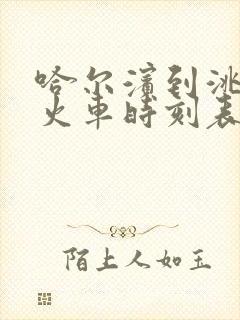 哈尔滨到洮
火車時刻表
陌上人如玉